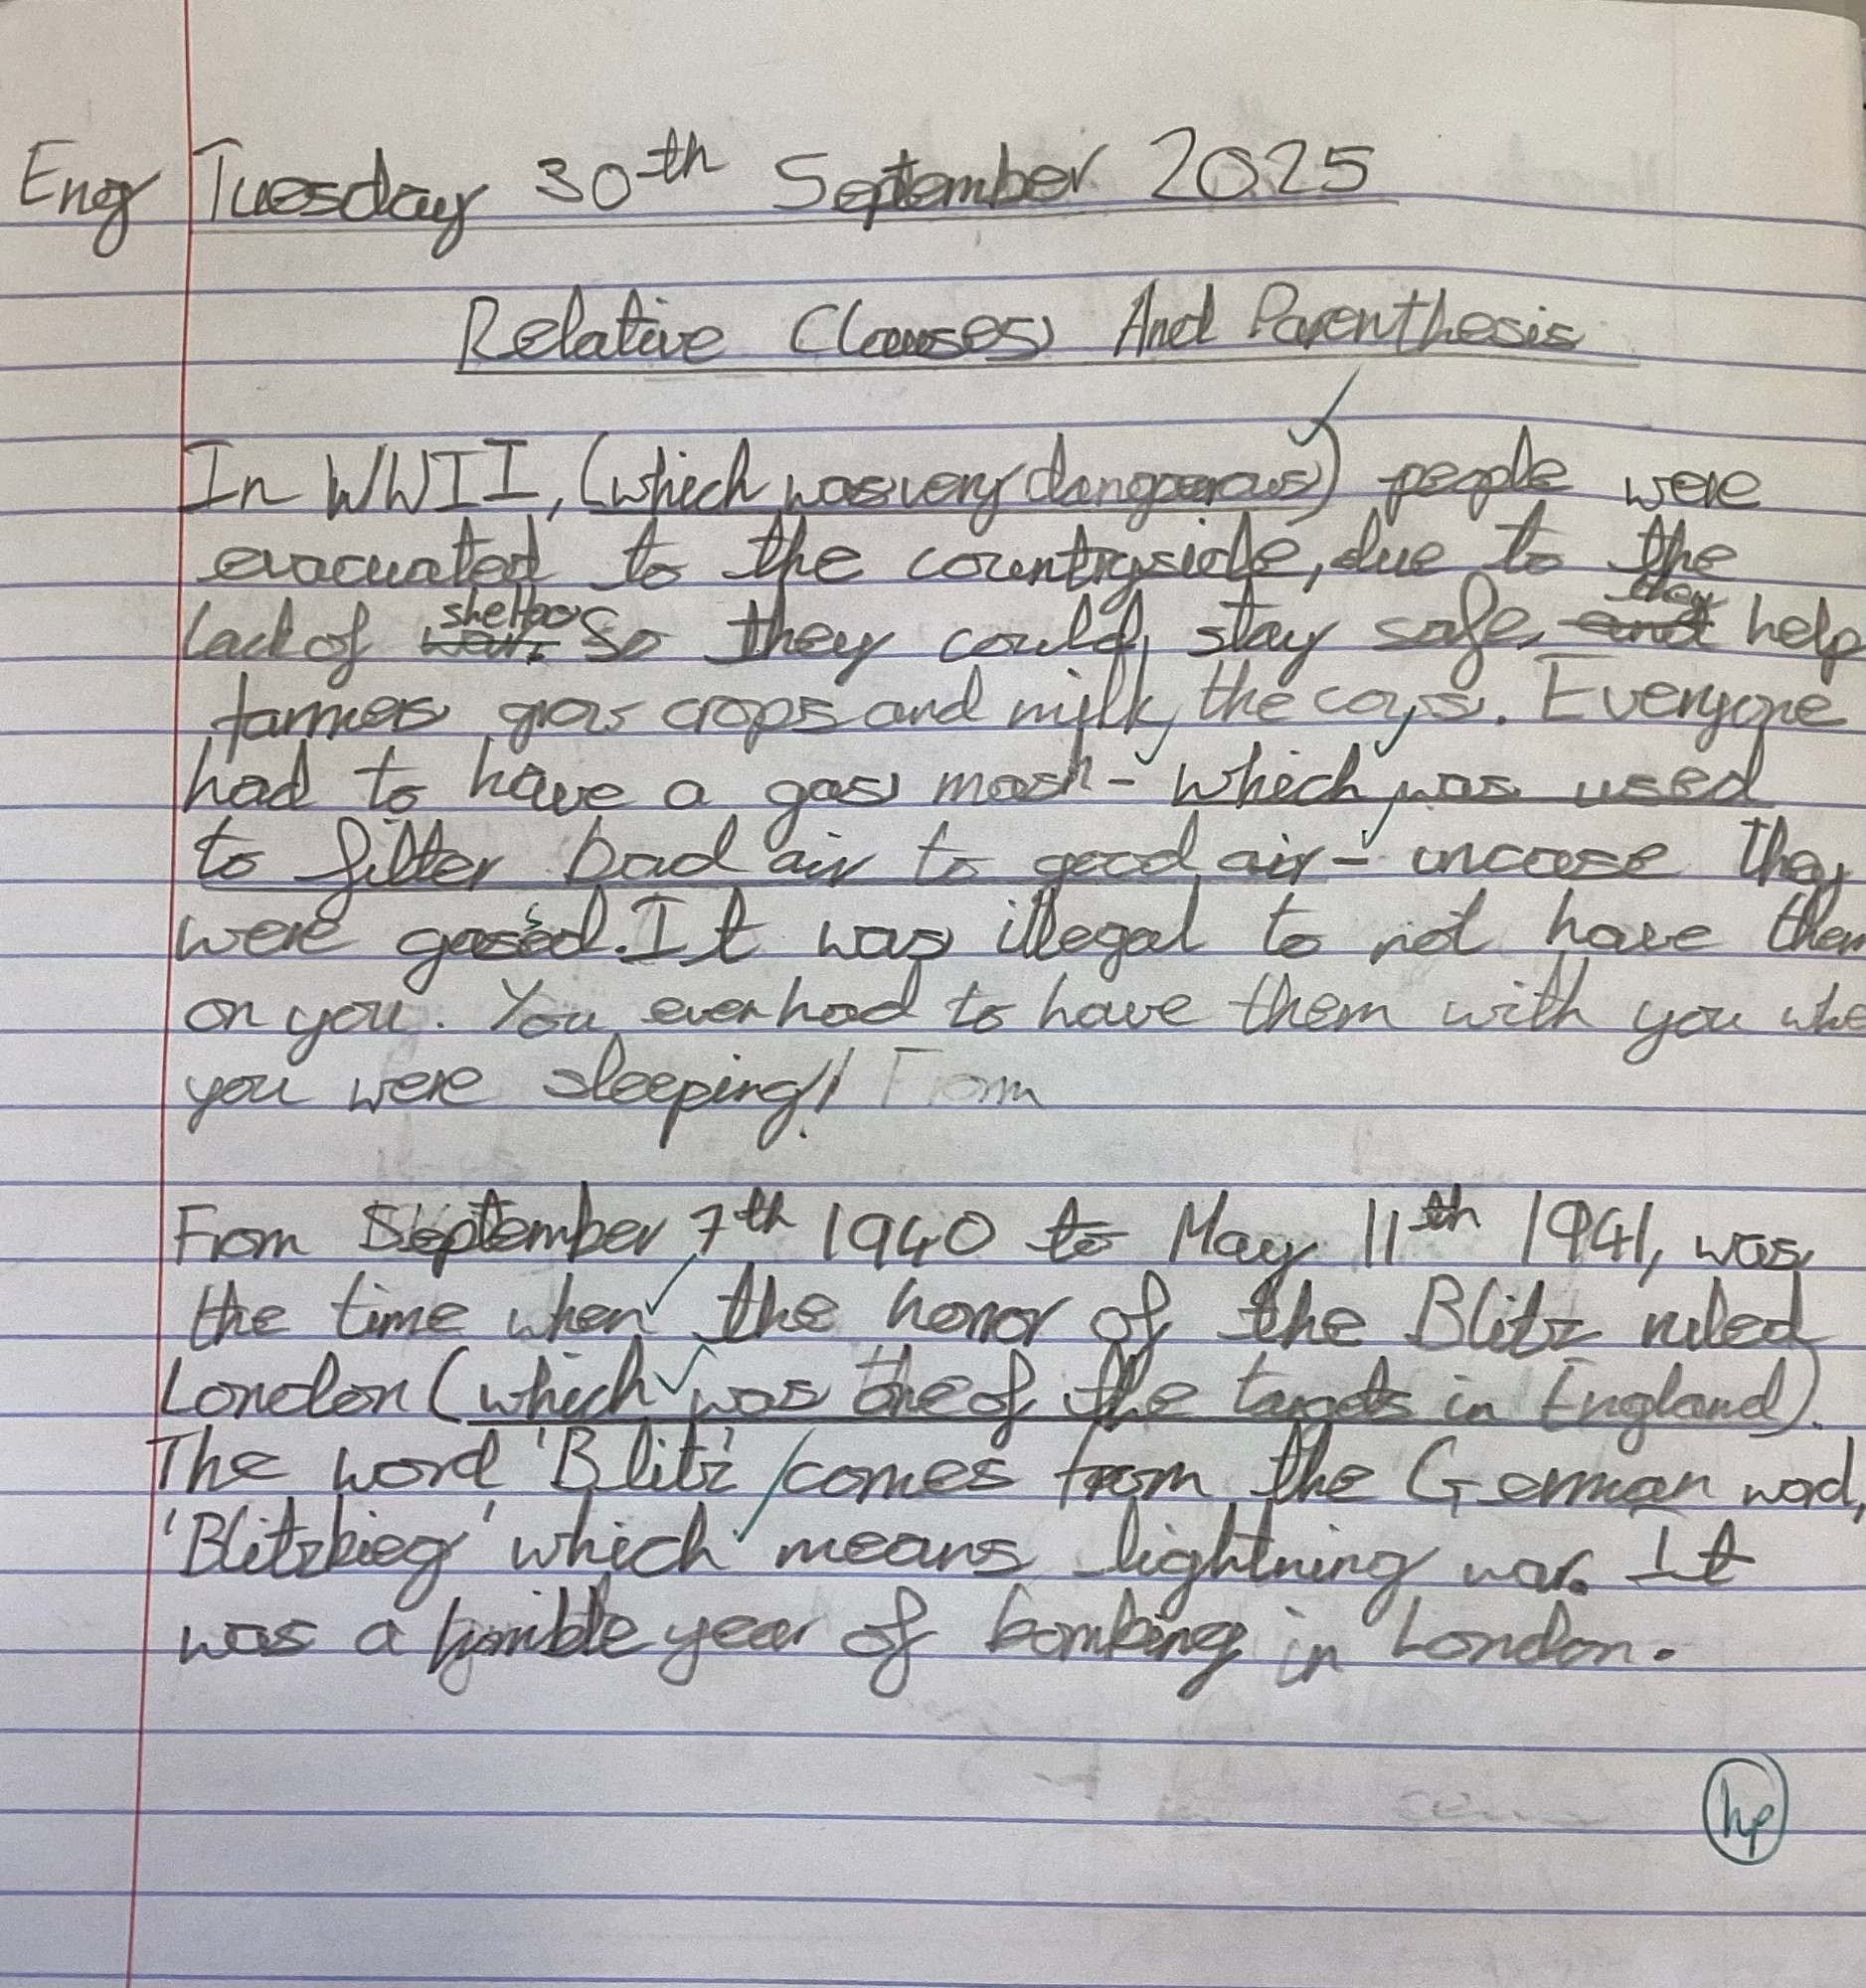 Eng Tuesday 30th September 2025
Relative Clauses And Parenthesis
In WWII, (which was very dangerous) people were
evacuated to the countryside, due to the
lack of shelter So they could stay safe, they help
farmers grow crops and milk the cows. Everyone
had to have a gas mask - which was used
to filter bad air to good air - incase they
were gassed. It was illegal to not have them
on you. You even had to have them with you whe
you were sleeping! From
From September 7th 1940 to May 11th 1941, was
the time when the horror of the Blitz ruled
London (which was one of the targets in England).
The word 'Blitz' comes from the German word,
'Blitzkieg' which means lightning war. It
was a horrible year of bombing in London.
hp